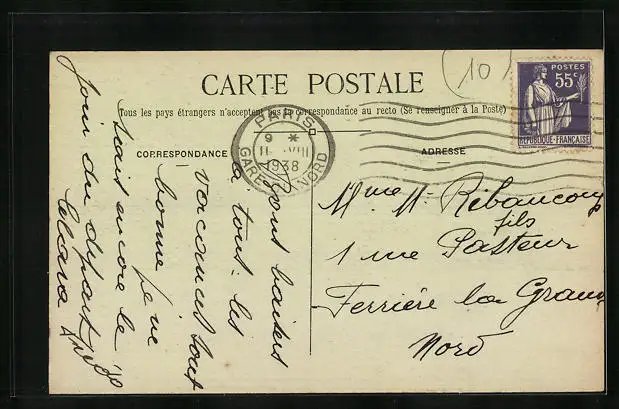 (10)
POSTES
55c
REPUBLIQUE-FRANÇAISE
CARTE POSTALE
Tous les pays étrangers n'acceptent pas la correspondance au recto (Se renseigner à la Poste)
PARIS
9 *
VIII
1938
GARE NORD
CORRESPONDANCE
ADRESSE
baisers
à tous les
vacances tout
bonne je ne
sais encore le
jour du départ
Mme M. Ribaucourt
fils
1 rue Pasteur
Ferrière la Grande
Nord